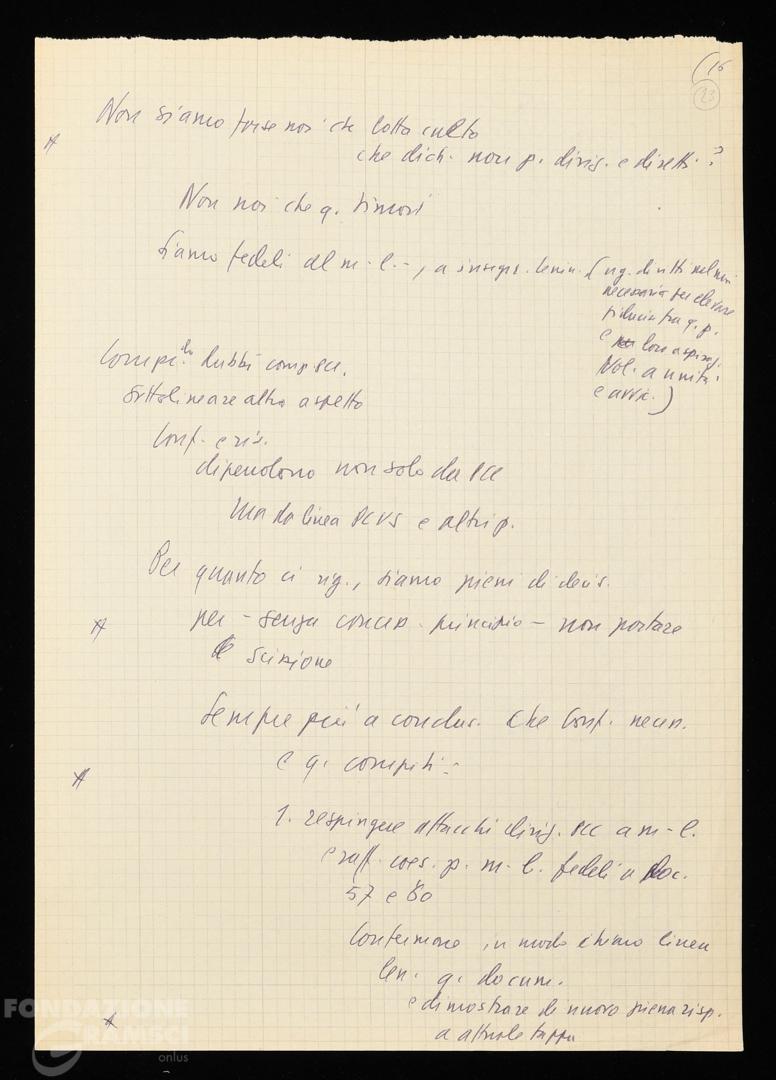 (16
23
Non siamo forse noi che lotta culto
che dich. non p. dirig. e diretti?
Non noi che q. timori
Siamo fedeli al m-l-, a insegn. Lenin (
necessaria per elevare
fiducia fra q. p.
e loro aspiraz.
a unità
e avvic.)
Compr. dubbi comp sci.
Sottolineare altro aspetto
Conf. e ris.
dipendono non solo da PCC
ma da linea PCUS e altri p.
Per quanto ci rig., siamo pieni di decis.
per - senza conces. principio - non portare
a scissione
Sempre più a conclus. che Conf. necess.
e q. compiti:
1. respingere attacchi dirig. PCC a m-l.
e raff. coes. p. m-l. fedeli a Doc.
57 e 60
Confermare in modo chiaro linea
len. q. docum.
e dimostrare di nuovo piena risp.
a attuale tappa
FONDAZIONE
GRAMSCI
onlus